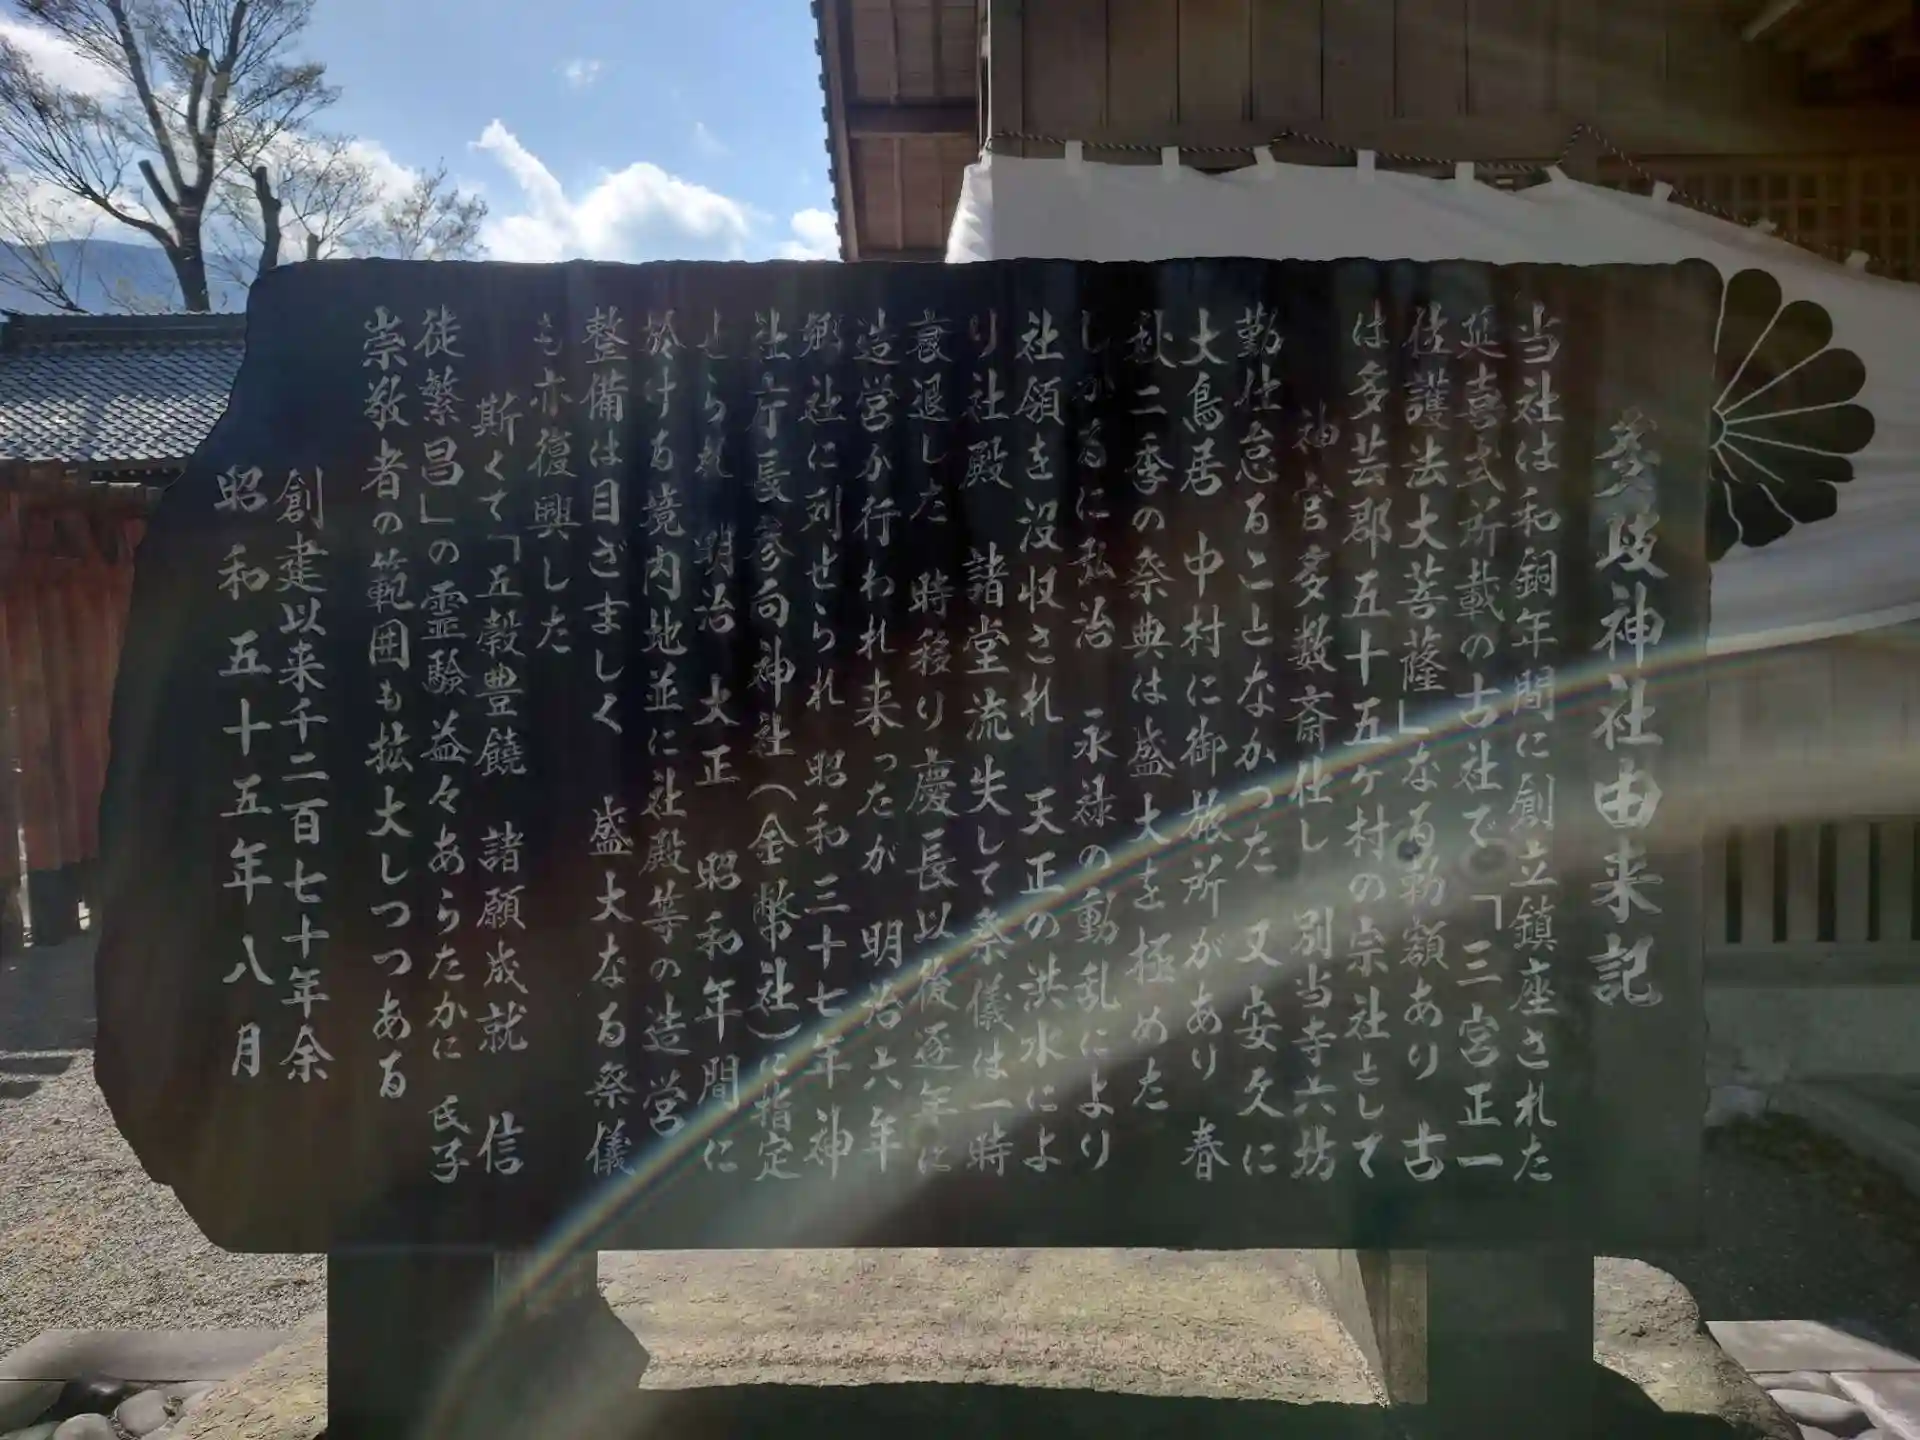 多岐神社由来記
当社は和銅年間に創立鎮座された
延喜式所載の古社で「三宮正一
位護法大菩薩」なる勅額あり 古
は多芸郡五十五ヶ村の宗社として
神官多数斎仕し 別当寺六坊
勤仕怠ることなかつた 又安久に
大鳥居 中村に御旅所があり 春
秋二季の祭典は盛大を極めた
しかるに弘治 永禄の動乱により
社領を没収され 天正の洪水によ
り社殿 諸堂流失して祭儀は一時
衰退した 時移り慶長以後逐年に
造営が行われ来つたが 明治六年
郷社に列せられ 昭和三十七年神
社庁長参向神社(金幣社)に指定
せられ 明治 大正 昭和年間に
於ける境内地並に社殿等の造営
整備は目ざましく 盛大なる祭儀
も亦復興した
斯くて「五穀豊饒 諸願成就 信
徒繁昌」の霊験益々あらたかに 氏子
崇敬者の範囲も拡大しつつある
創建以来千二百七十年余
昭和五十五年八月